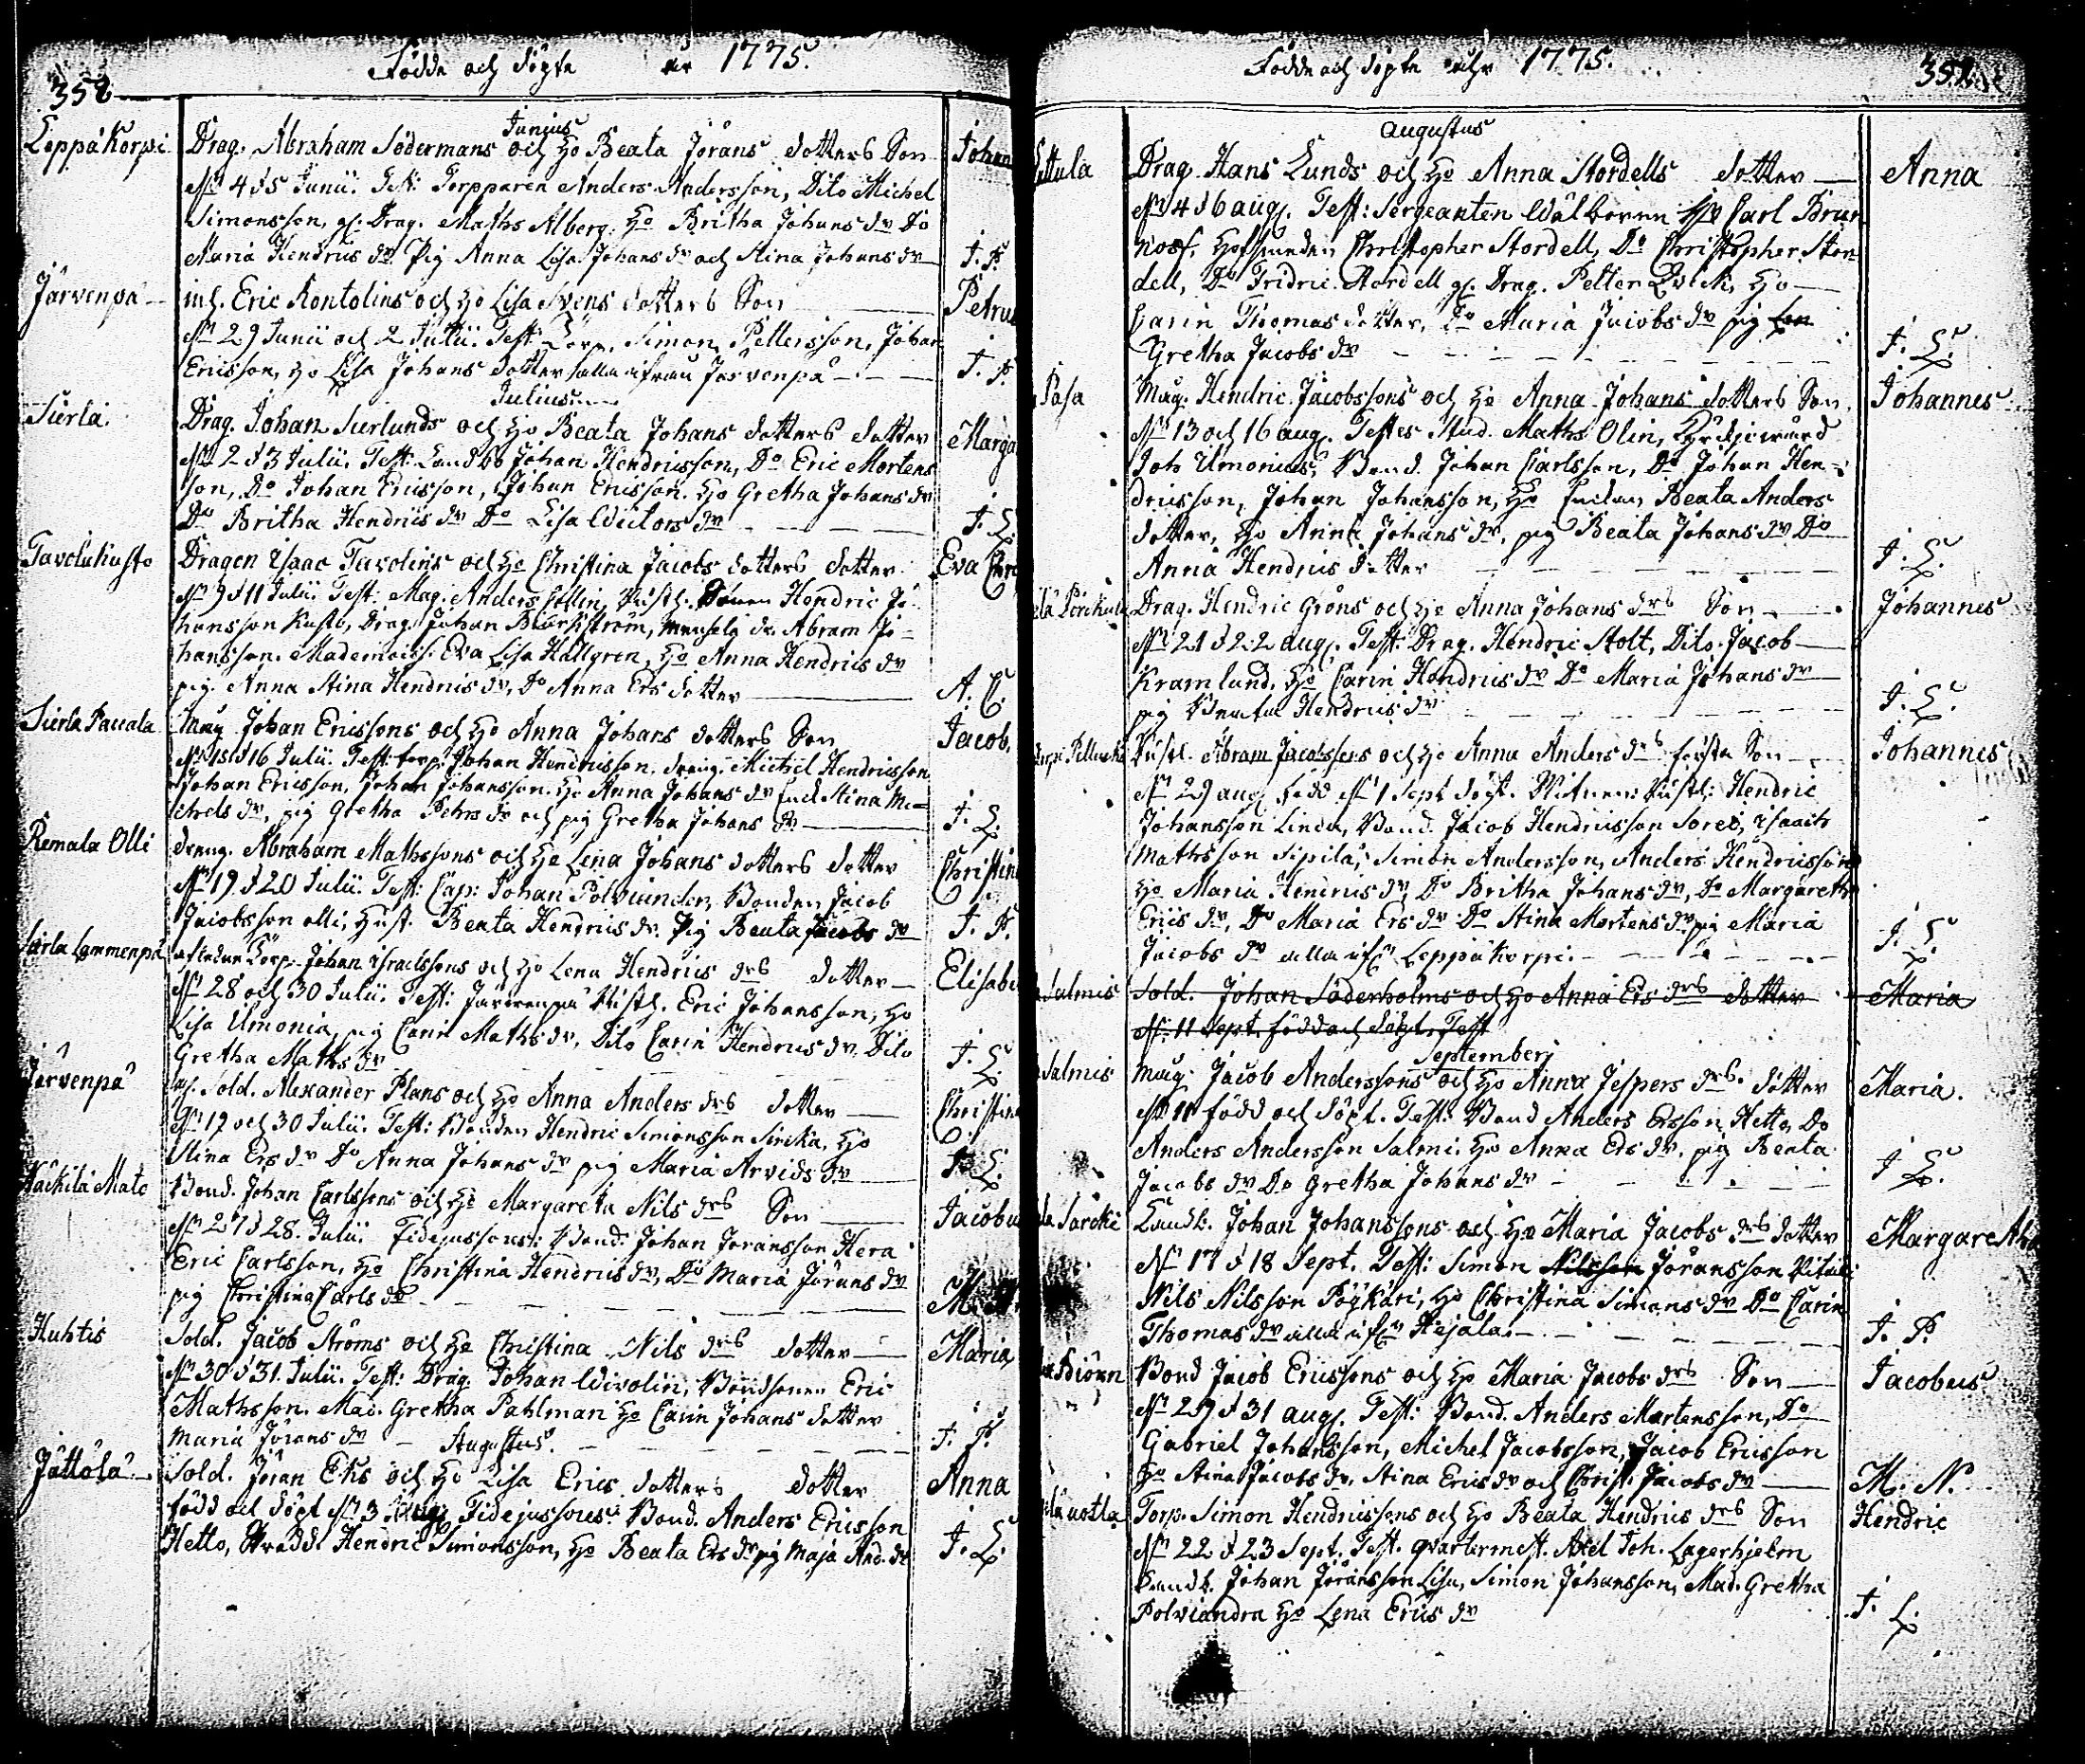 Födde och döpte år 1775.
358
Junius
Leppäkorpi Drag. Abraham Södermans och Ho Beata Jörans dotters Son Johan
d. 4 d 5 Junii. Test: Torpparen Anders Andersson, Dito Michel
Simonsson, gl. Drag. Maths Alberg. Ho Britha Johans dr Do
Maria Hendrics dr Pig Anna Lisa Johans dr och Stina Johans dr J. P.
Järvenpä inh. Eric Kontolins och Ho Lisa Svens dotters Son Petrus
d. 29 Junii och 2 Julii. Test: Simon Pettersson, Johan
Ericsson, Ho Lisa Johans dotter alla ifrån Järvenpä J. P.
Julius
Sierla Drag. Johan Sierlunds och Ho Beata Johans dotters dotter Marga
d. 2 d 3 Julii. Test: Landb Johan Hendricsson, Do Eric Mortens
son, Do Johan Ericsson, Johan Ericsson. Ho Gretha Johans dr
Do Britha Hendrics dr Do Lisa Wictors dr J. L.
Tavolakusto Dragon Isaac Tavolins och Ho Christina Jacobs dotters dotter Eva Chri
d. 9 d 11 Julii. Test: Mag. Anders Collin, Hendric Jo
hansson Kusto, Drag. Johan Biörckström, Abram Jo
hansson. Mademois. Eva Lisa Hallgren, Ho Anna Hendrics dr
pig. Anna Stina Hendrics dr, Do Anna Ers dotter A. C.
Sierla Paccala Mag Johan Ericssons och Ho Anna Johans dotters Son Jacob.
d. 15 d 16 Julii. Test: torp. Johan Hendricsson, dreng. Michel Hendricsson
Johan Ericsson, Johan Johansson. Ho Anna Johans dr Enck Stina Mi=
chels dr, pig Gretha Petrs dr och pig Gretha Johans dr J. L.
Remala Olli dreng. Abraham Mathssons och Ho Lena Johans dotters dotter Christin
d. 19 d 20 Julii. Test: Cap: Johan Polviander, Bonden Jacob
Jacobsson olli, Hust. Beata Hendrics dr. Pig Beata Jacobs dr J. P.
Sierla Lammenpä afledne Torp. Johan Israelssons och Ho Lena Hendrics drs dotter Elisabe
d. 28 och 30 Julii. Test: Järvenpä Eric Johansson, Ho
Lisa Umonia, pig Carin Maths dr, Dito Carin Hendrics dr. Dito
Gretha Maths dr J. L.
Järvenpä af. Sold. Alexander Plans och Ho Anna Anders drs dotter Christin
d. 19 och 30 Julii. Test: Bonden Hendric Simonsson Sircka, Ho
Stina Ers dr Do Anna Johans dr pig Maria Arvids dr J. L.
Käckilä Mato Bond. Johan Carlssons och Ho Margareta Nils drs Son Jacobu
d. 27 d 28. Julii. Fidejussores: Bond. Johan Joransson Hera
Eric Carlsson, Ho Christina Hendrics dr, Do Maria Jörans dr
pig Christina Carls dr M. N.
Huhtis Sold. Jacob Ströms och Ho Christina Nils drs dotter Maria
d. 30 d 31. Julii. Test: Drag Johan Wivolin, Bondsonen Eric
Mathsson. Mad. Gretha Pahlman Ho Carin Johans dotter
Maria Jörans dr J. P.
Augustus.
Jättölä Sold. Jöran Eks och Ho Lisa Erics dotters dotter Anna
född och döpt d. 3 Aug. Fidejussores: Bond. Anders Ericsson
Hetto, Skredd. Hendric Simonsson, Ho Beata Ers dr, pig Maja And. dr J. L.
Födde och döpte åhr 1775.
Augustus
Drag. Hans Lunds och Ho Anna Stordells dotter Anna
d. 4 d 6 aug. Test: Sergeanten Wälborne Hr Carl Brun
now, Christopher Stordell, Do Christopher Stor
dell, Do Fridric Stordell gl. Drag. Petter Qvick, Ho
Carin Thomas dotter, Do Maria Jacobs dr pig
Gretha Jacobs dr J. L.
Pasa Mag. Hendric Jacobssons och Ho Anna Johans dotters Son. Johannes
d. 13 och 16 aug. Testes. Stud. Maths Olin, Kyrckiowärd
Joh Umonius, Bond. Johan Carlsson, Do Johan Hen=
dricsson, Johan Johansson, Ho Enckan Beata Anders
dotter, Ho Anna Johans dr, pig Beata Johans dr Do
Anna Hendrics dotter J. L.
Drag. Hendric Gröns och Ho Anna Johans drs Son Johannes
d. 21 d 22 aug. Test: Drag. Hendric Stolt, Dito Jacob
Kramlund, Ho Carin Hendrics dr Do Maria Johans dr
pig Beata Hendrics dr J. L.
Abram Jacobssons och Ho Anna Anders drs första Son Johannes
d. 29 aug född d. 1 Sept döpt. Hendric
Johansson Linda, Bond. Jacob Hendricsson Soroi, Isaach
Mathsson Sipilä, Simon Andersson, Anders Hendricsson
Ho Maria Hendrics dr, Do Britha Johans dr, Do Margaretha
Erics dr, Do Maria Ers dr Do Stina Mortens dr pig Maria
Jacobs dr alla ifr Leppäkorpi. J. L.
Salmis Sold. Johan Söderholms och Ho Anna Ers drs dotter Maria
d. 11 Sept. född och döpt. Test
Septemberj
Salmis Mag. Jacob Anderssons och Ho Anna Jespers drs. dotter Maria.
d. 11 född och döpt. Test. Bond Anders Ersson Hetto, Do
Anders Andersson Salmi. Ho Anna Ers dr, pig Beata
Jacobs dr Do Gretha Johans dr J. L.
Särcki Landb. Johan Johanssons och Ho Maria Jacobs drs dotter Margaretha
d. 17 d 18 Sept. Test: Simon Nilsson Jöransson
Nils Nilsson Pöykäri, Ho Christina Simons dr Do Carin
Thomas dr alla ifr Hejala. J. P.
Biörn Bond Jacob Ericssons och Ho Maria Jacobs drs Son Jacobus
d. 29 d 31 aug. Test: Bond. Anders Mortensson, Do
Gabriel Johansson, Michel Jacobsson, Jacob Ericsson
Ho Stina Jacobs dr. Stina Erics dr och Christ. Jacobs dr M. N.
Torp. Simon Hendricssons och Ho Beata Hendrics drs Son Hendric
d. 22 d 23 Sept. Test. qvartermest. Axel Joh. Lagerhjelm
Landb. Johan Jöransson Lisu, Simon Johansson, Mad. Gretha
Polviandra Ho Lena Erics dr J. L.